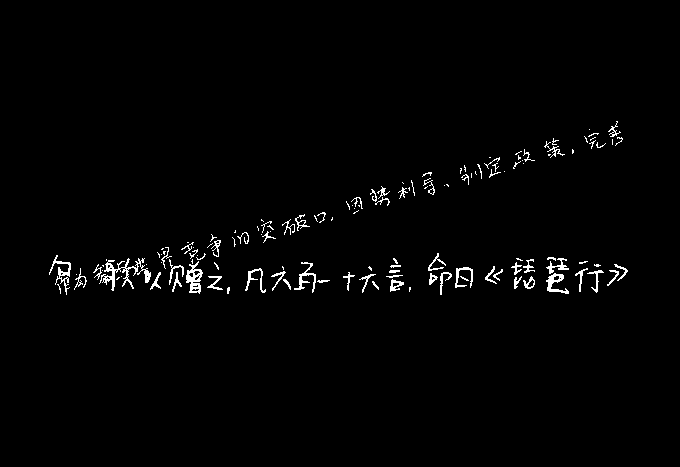 界竞争的突破口,因势利导、制定政策,完善
以赠之,凡六百一十六言,命曰《琵琶行》